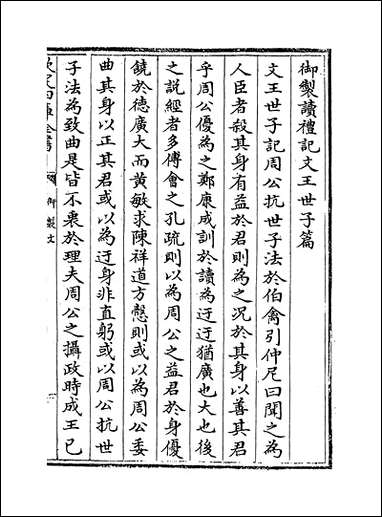 御製讀禮記文王世子篇
文王世子記周公抗世子法於伯禽引仲尼曰聞之為
人臣者殺其身有益於君則為之況於其身以善其君
乎周公優為之鄭康成訓於讀為迂迂猶廣也大也後
之說經者多傅會之孔疏則以為周公之益君於身優
饒於德廣大而黃敏求陳祥道方慤則或以為周公委
曲其身以正其君或以為迂身非直躬或以周公抗世
子法為致曲是皆不衷於理夫周公之攝政時成王已
欽定四庫全書
御製文
一